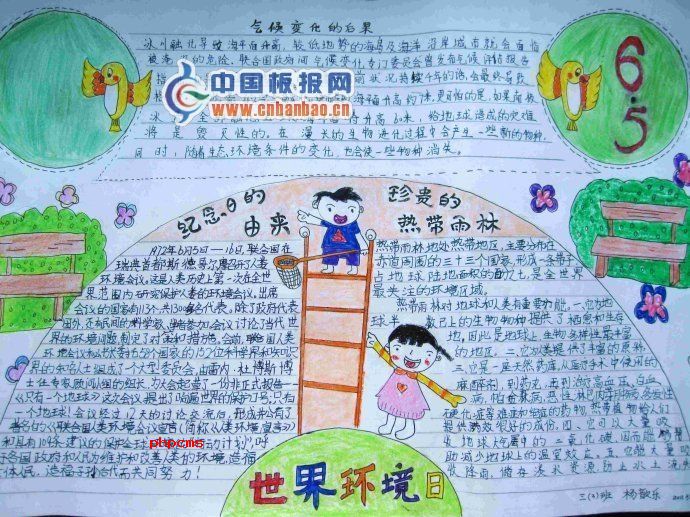 气候变化的后果
冰川融化导致海平面升高,较低地势的海岛及海洋沿岸城市就会面临
被淹没的危险。联合国政府间气候变化专门委员会曾发布气候评估报告
中国板报网
www.cnbanbao.cn
将是毁灭性的。在漫长的生物进化过程中会产生一些新的物种,
同时,随着生态环境条件的变化,也会使一些物种消失。
6.5
纪念日的
由来
1972年6月5日—16日,联合国在
瑞典首都斯德哥尔摩召开了人类
环境会议。这是人类历史上第一次在全世
界范围内研究保护人类的环境会议。出席
会议的国家有113个,共1300多名代表。除了政府代表
团外,还有民间的科学家
会议讨论了当代世
界的环境问题,制定对策和措施。会前,联合国人类
环境会议
58个国家的152位科学界和知识
界的知名人士组成了一个大型委员会,由雷内·杜博斯博
士任专家顾问小组的组长,为大会起草了一份非正式报告—
《只有一个地球》。这次会议提出了响遍世界的环境保护口号:只有
一个地球!会议经过12天的讨论交流后,形成并公布了
著名的《联合国人类环境会议宣言》(简称《人类环境宣言》)
和具有109条建议的保护全球
行动计划》,呼
吁各国政府和人民为维护和改善人类的环境,造福
全体人民,造福子孙后代而共同努力!
phpcms
珍贵的
热带雨林
热带雨林地处热带地区,主要分布在
赤道周围的三十三个国家,形成一条带子,
占地球陆地面积的百分之七,是全世界
最关注的环境区域。
热带雨林对地球和人类有重要功能。一、它为地
球半数已上的生物物种提供了栖息和生存
地,因此是地球上生物多样性最丰富
的地区。二、它对人类提供了丰富的原料。
三、它是一座天然药库,从医疗手术中使用的
麻醉剂,到药丸,出到治疗高血压、白血
病、帕金森病、
硬化症等难症和绝症的药物,热带雨林都给人们
提供高效很好的成份。四、它可以大量吸
收地球大气层中的二氧化碳因而能帮
助减少地球上的温室效应。五、它能大量吸
收降雨,储存淡水资源,防止水土流失
世界环境日
三(2)班 杨歆乐